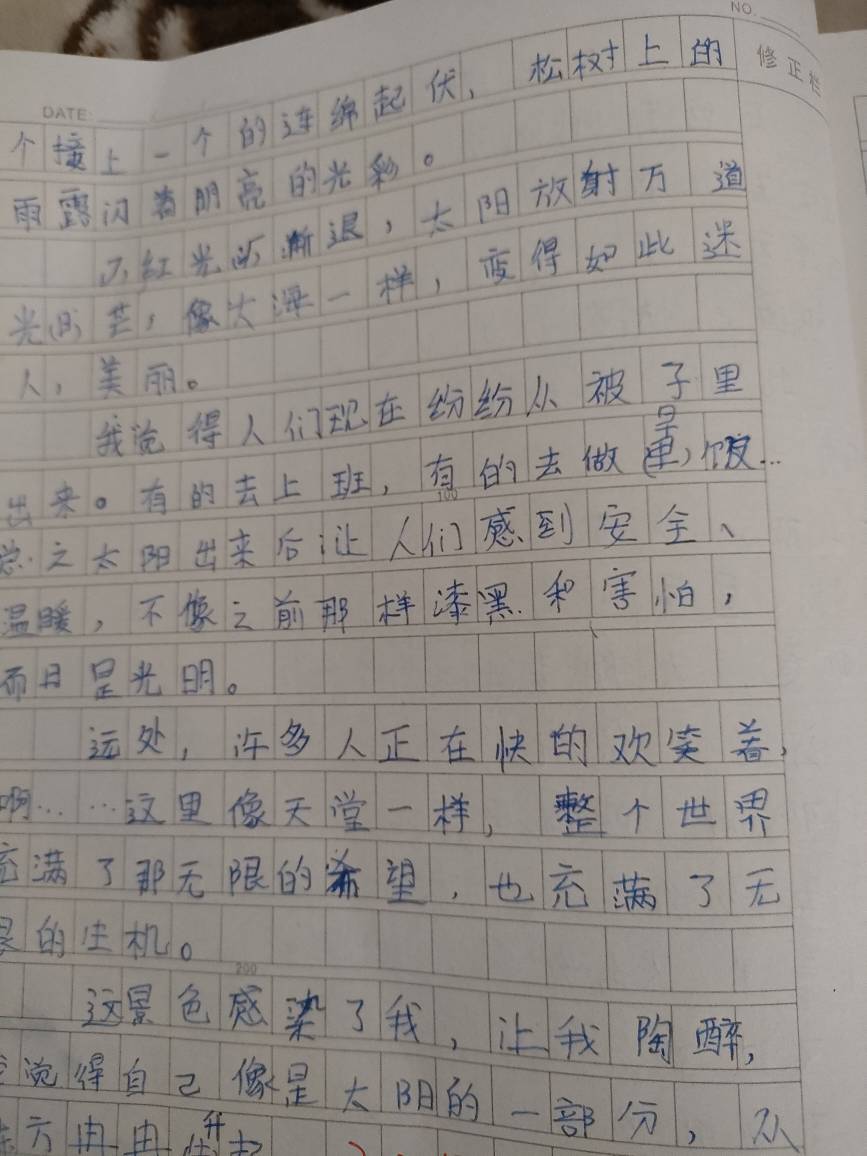 NO.
修正栏
DATE:
个接上一个的连绵起伏，松树上的
雨露闪着明亮的光彩。
红光渐渐退，太阳放射万道
光(的)芒，像大海一样，变得如此迷
人，美丽。
我觉得人们现在纷纷从被子里
出来。有的去上班，有的去做(里)早饭…
100
总之太阳出来后让人们感到安全、
温暖，不像之前那样漆黑和害怕，
而日是光明。
远处，许多人正在快的欢笑着，
啊……这里像天堂一样，整个世界
充满了那无限的希望，也充满了无
限的生机。
200
这景色感染了我，让我陶醉，
觉得自己像是太阳的一部分，从
东方冉冉升起